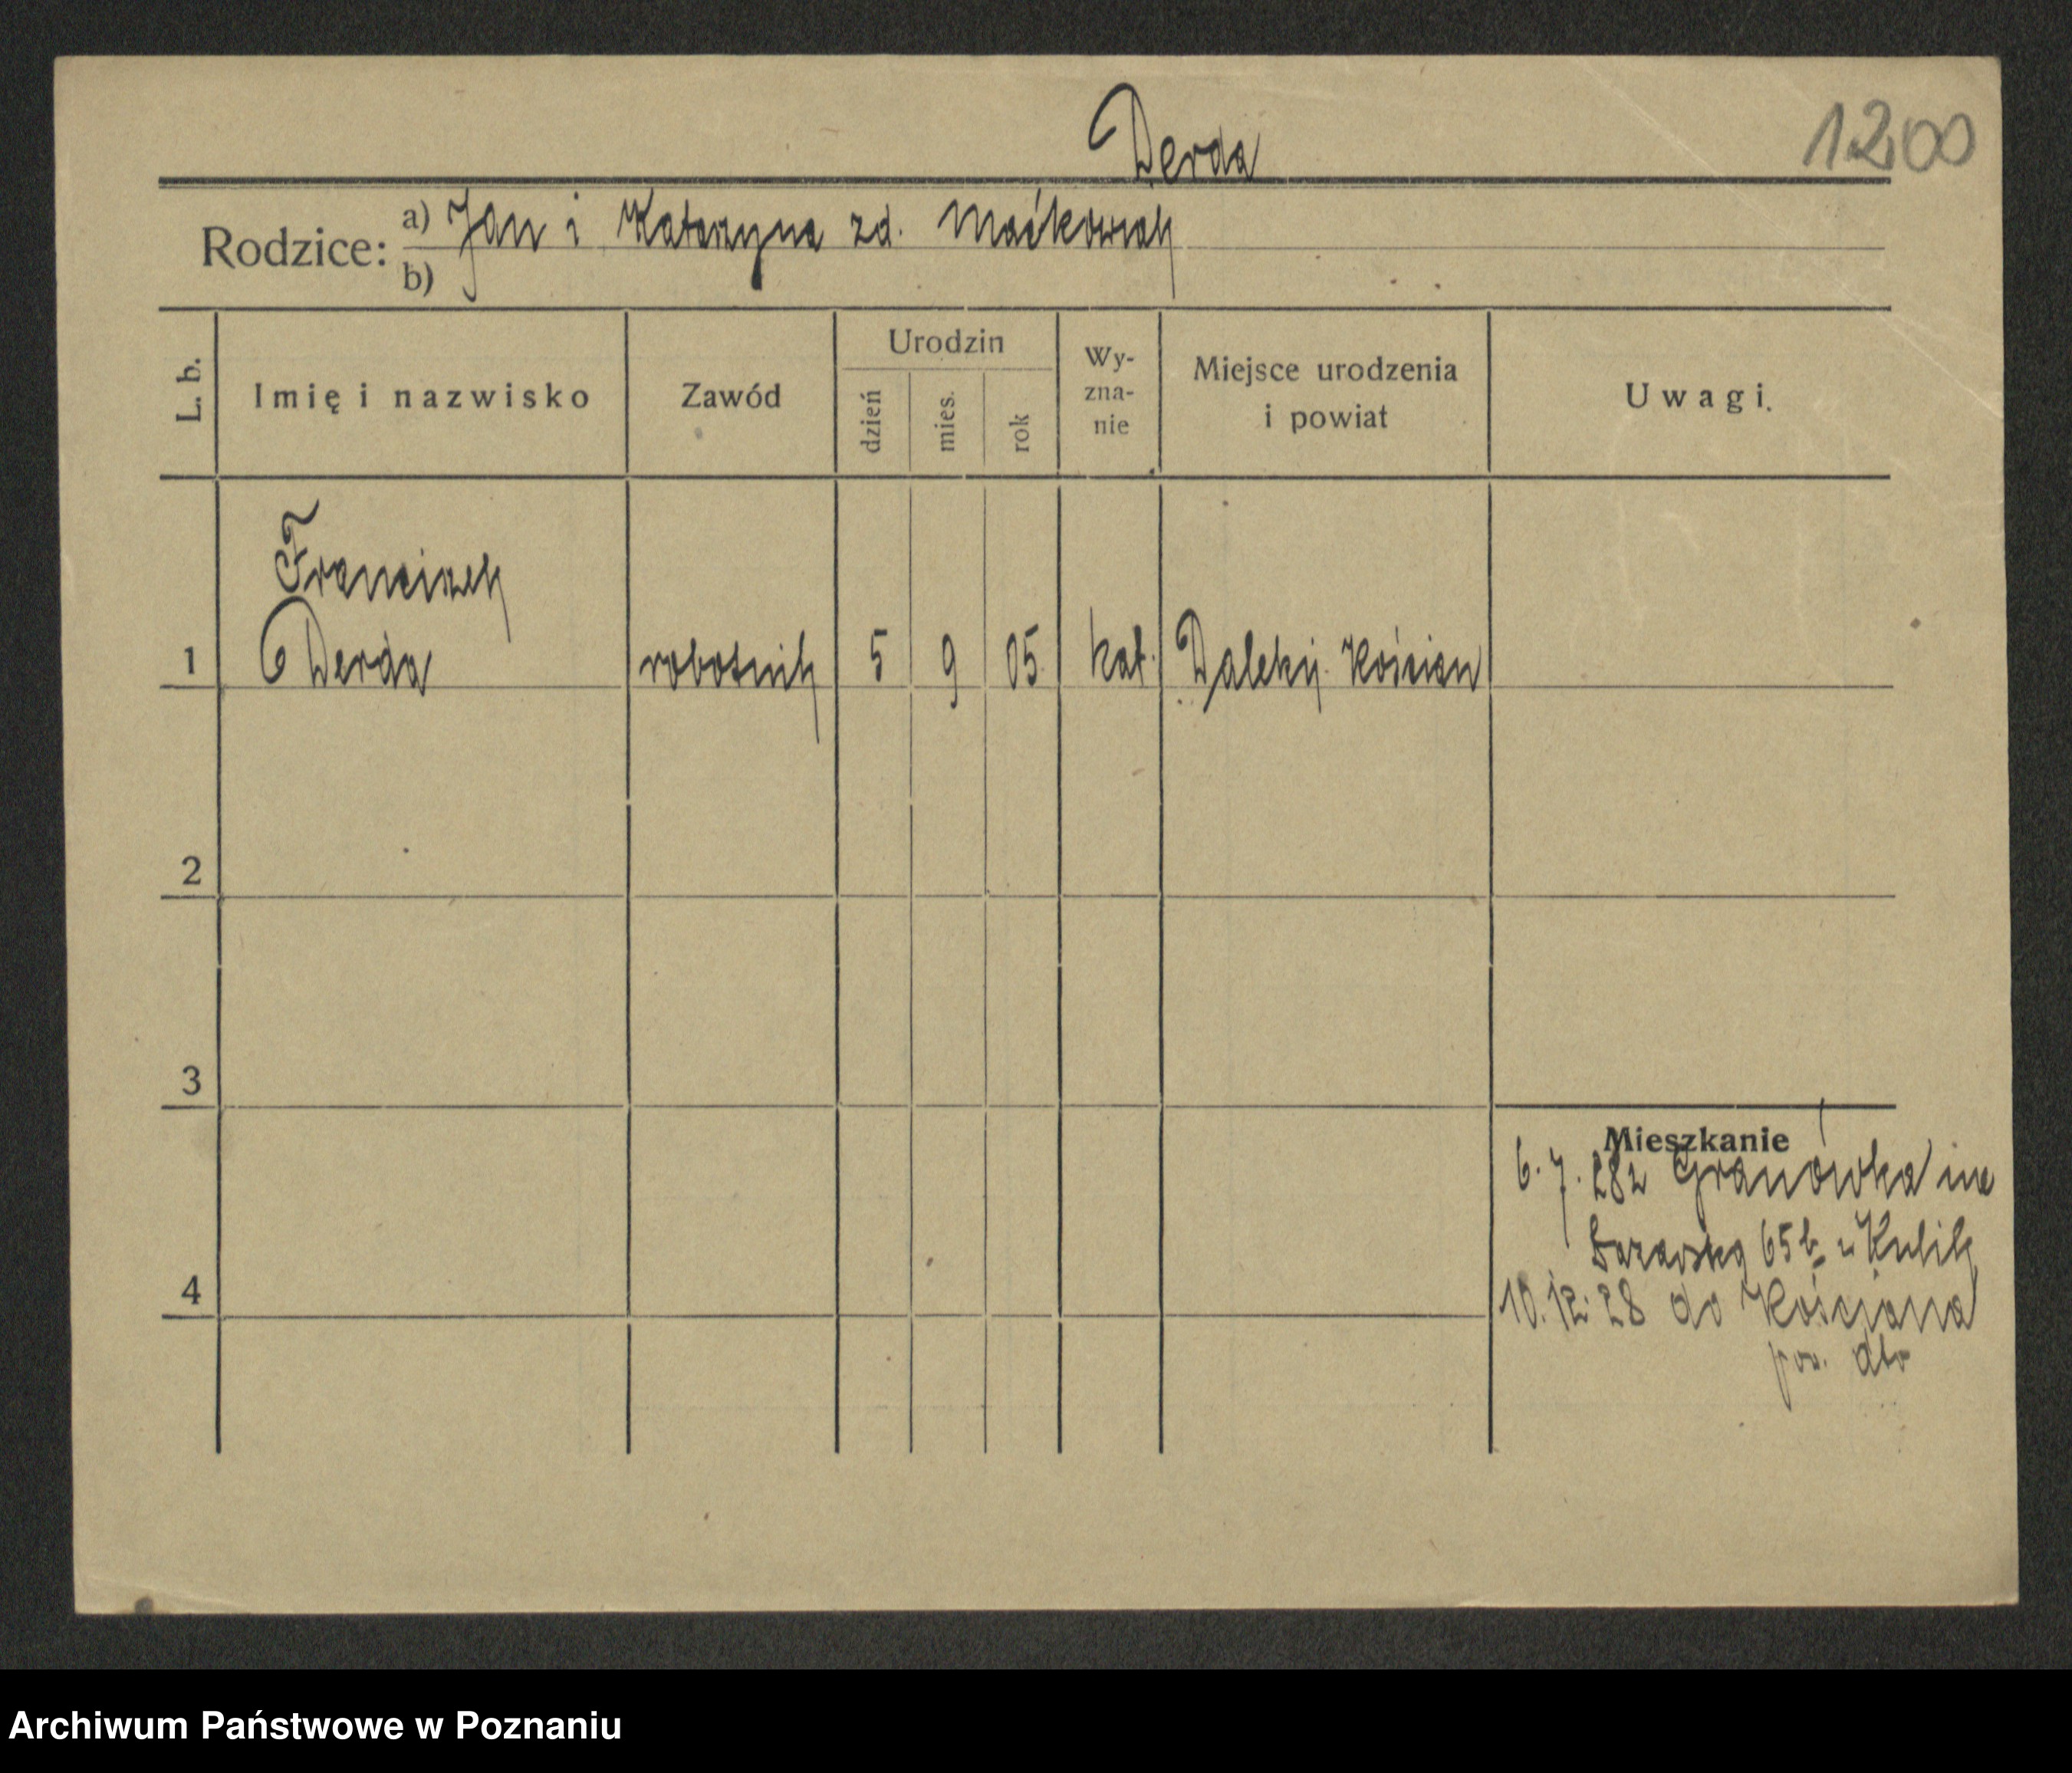 Derda
1200
Rodzice: a) Jan i Katarzyna zd. Maćkowiak
b)
L. b.
Imię i nazwisko
Zawód
Urodzin
dzień
mies.
rok
Wy-
zna-
nie
Miejsce urodzenia
i powiat
Uwagi.
Franciszek
1 Derda robotnik 5 9 05 kat. Kościan
2
3
4
Mieszkanie
6. 7. 28 z Granówka na
65 b u Kulik
10. 12. 28 do Kościana
pow. dto
Archiwum Państwowe w Poznaniu